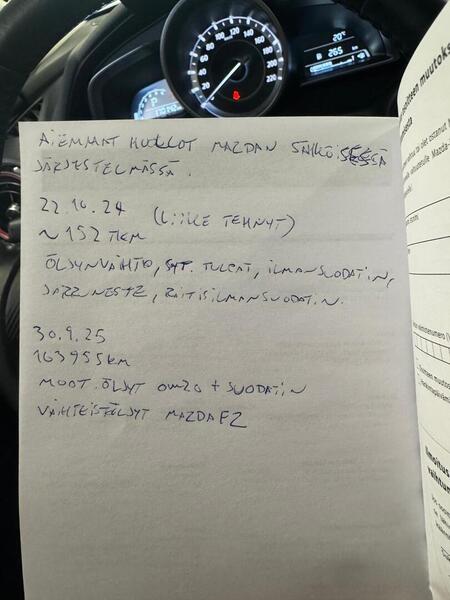 20°c
B 265 km
20
40
60
80
100
120
140
160
180
200
220
P
AIEMMAT HUOLLOT MAZDAN SÄHKÖISESSÄ
JÄRJESTELMÄSSÄ.
22.10.24 (LIIKE TEHNYT)
~152 TKM
ÖLJYNVAIHTO, SYT. TULPAT, ILMANSUODATIN,
JARRUNESTE, RAITISILMANSUODATIN.
30.9.25
163955KM
MOOT. ÖLJYT 0W20 + SUODATIN
VAIHTEISTÖLJYT MAZDA FZ
osoitteen muutoks
Ilmoitus
vaihtum